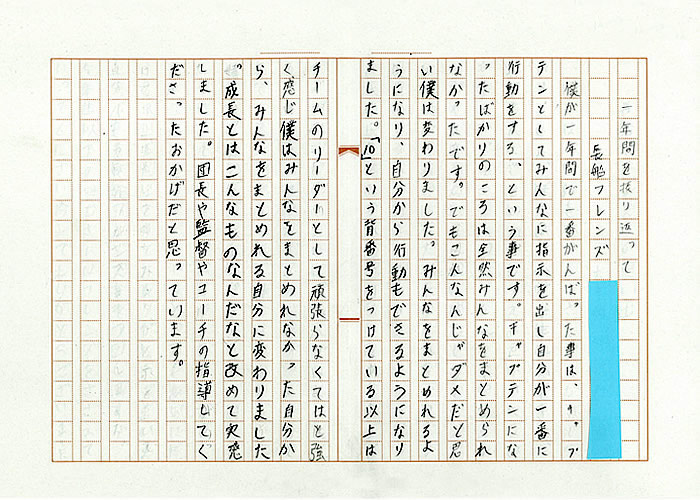 一年間を振り返って
長船フレンズ
僕が一年間で一番がんばった事は、キャプ
テンとしてみんなに指示を出し自分が一番に
行動をする、という事です。キャプテンにな
ったばかりのころは全然みんなをまとめられ
なかったです。でもこんなんじゃダメだと思
い僕は変わりました。みんなをまとめれるよ
うになり、自分から行動もできるようになり
ました。「10」という背番号をつけている以上は
チームのリーダーとして頑張らなくてはと強
く感じ僕はみんなをまとめれなかった自分か
ら、みんなをまとめれる自分に変わりました
。成長とはこんなものなんだなと改めて実感
しました。団長や監督やコーチの指導してく
ださったおかげだと思っています。